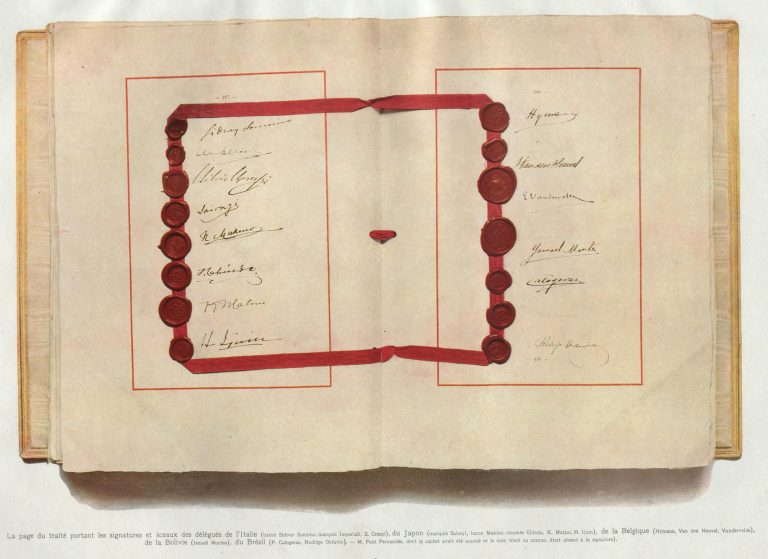 — 217 —
Sidney Sonnino
Imperiali
Silvio Crespi
Saionzi
N. Makino
S. Chinda
K. Matsui
H. Ijuin
Hymans
Van den Heuvel
E Vandervelde
Ismael Montes
Calogeras
Rodrigo Octavio
La page du traité portant les signatures et sceaux des délégués de l'Italie (baron Sidney Sonnino, marquis Imperiali, S. Crespi), du Japon (marquis Saionji, baron Makino, vicomte Chinda, K. Matsui, H. Ijuin), de la Belgique (Hymans, Van den Heuvel, Vandervelde),
de la Bolivie (Ismail Montes), du Brésil (P. Calogeras, Rodrigo Octavio). — M. Paul Fernandes, dont le cachet avait été apposé et le nom tracé au crayon, était absent à la signature).